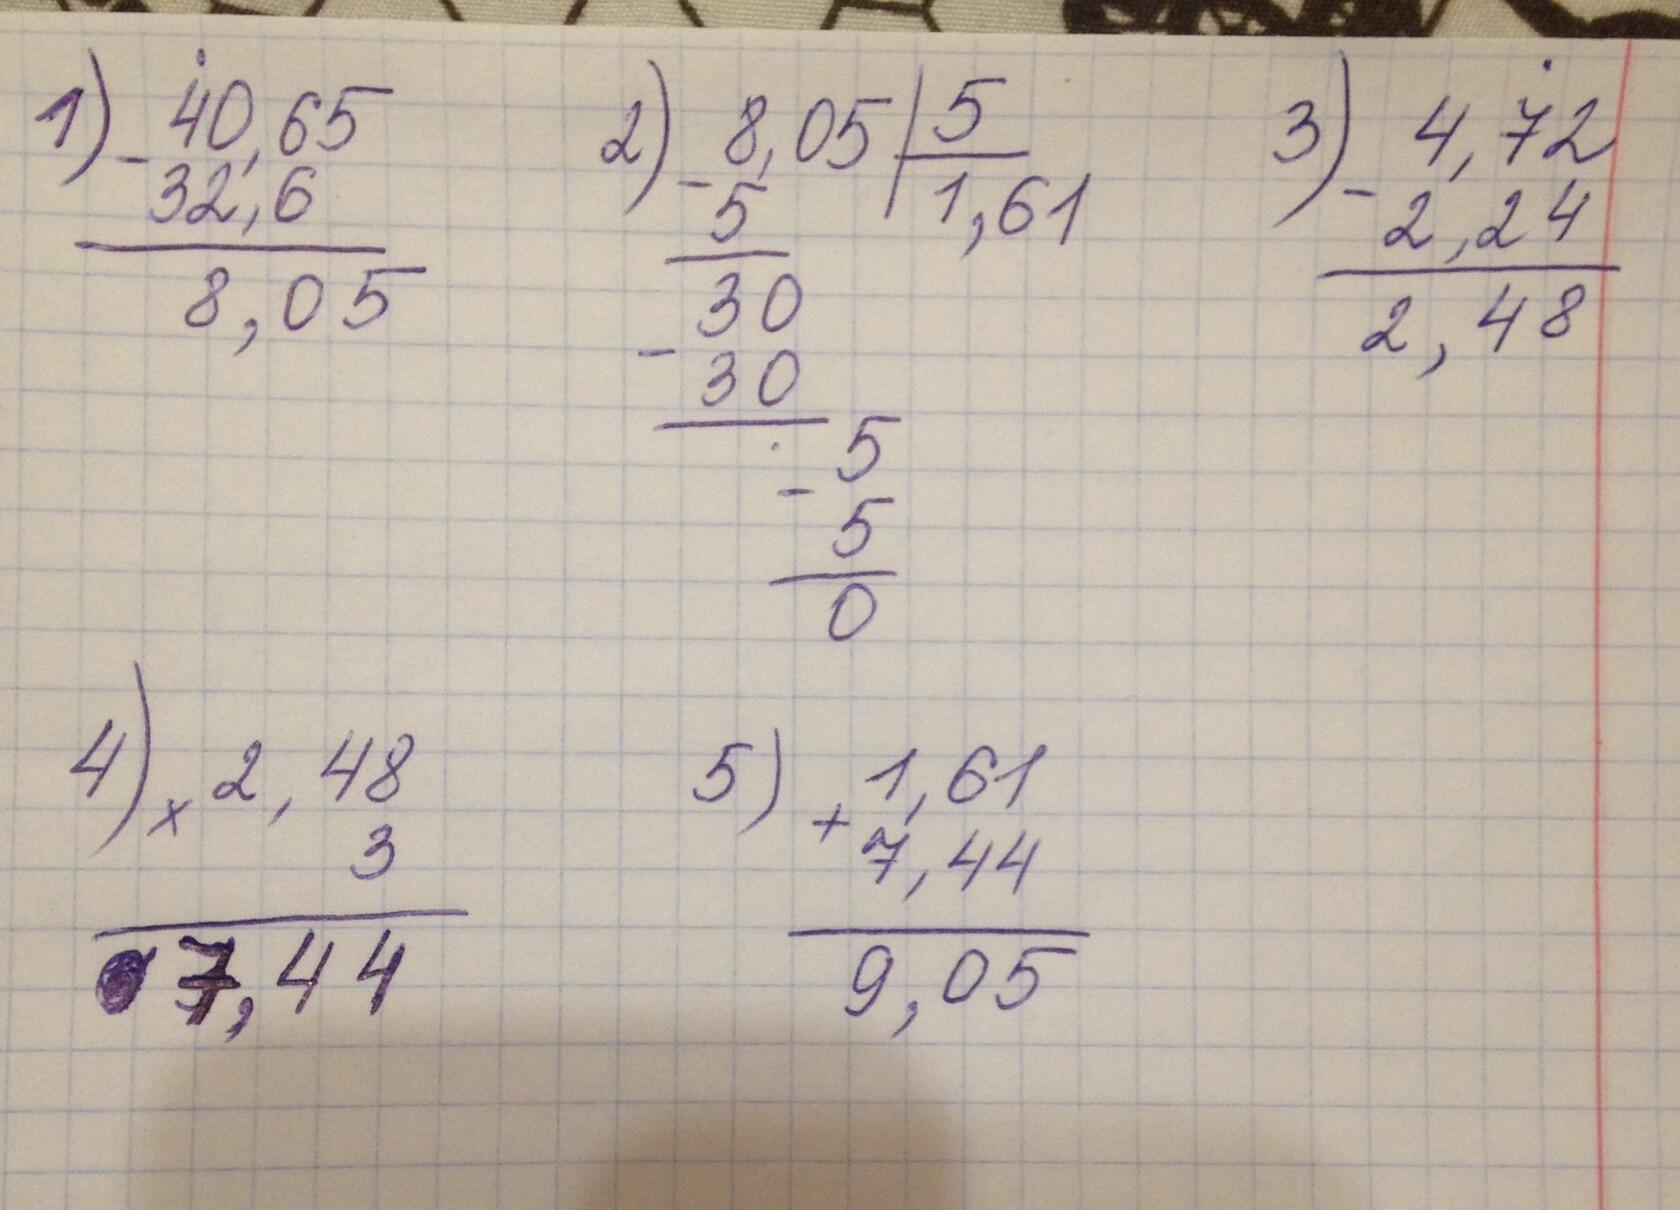 1) - 40,65
32,6
8,05
2) - 8,05 | 5
5
1,61
30
- 30
- 5
5
0
3) - 4,72
2,24
2,48
4) × 2,48
3
7,44
5) + 1,61
7,44
9,05